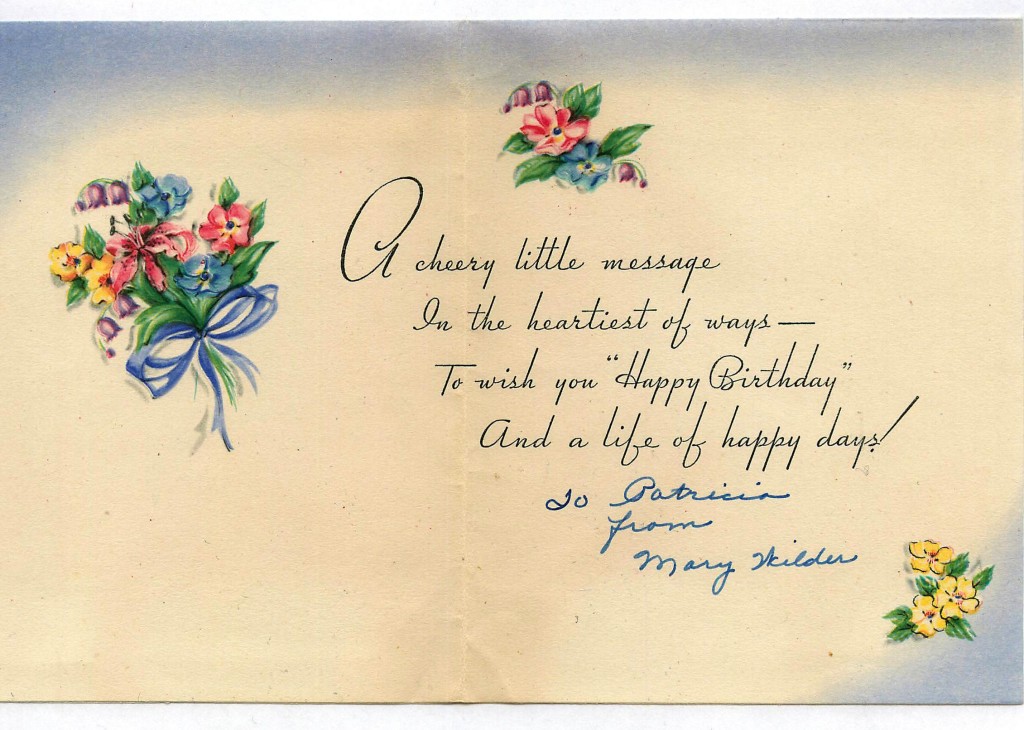 A cheery little message
In the heartiest of ways—
To wish you "Happy Birthday"
And a life of happy days!
To Patricia
from
Mary Wilder